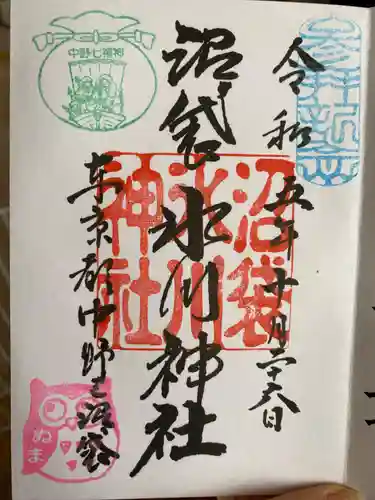 参拝祈念
令和五年十月二十六日
沼袋氷川神社
沼袋
氷川
神社
中野七福神
東京都中野区沼袋
ぬま